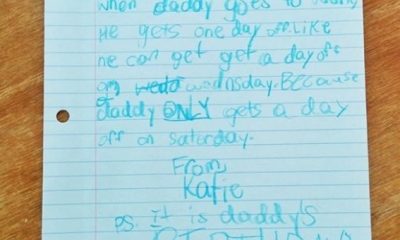 when daddy goes to
He gets one day off. Like
he can get get a day off
on wednsday. BECause
daddy ONLY gets a day
off on saturday.
From,
Katie
ps. It is daddy's